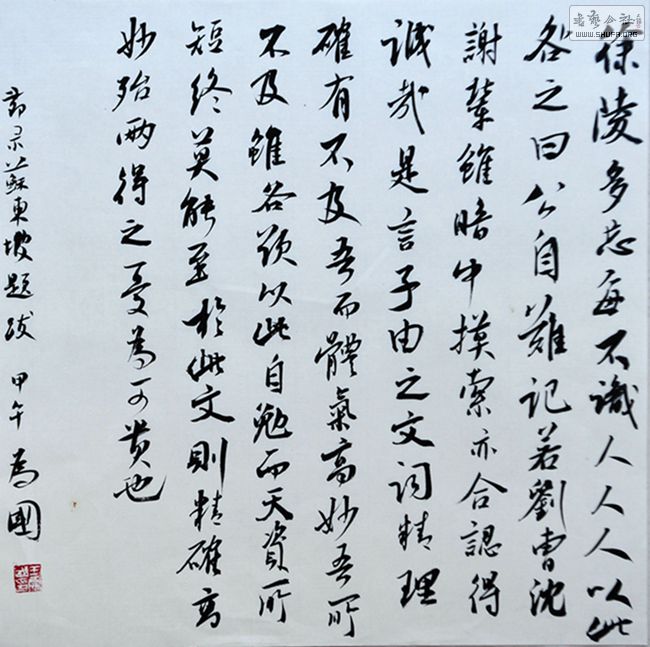 徐陵多忘每不識人人人以此
咎之曰公自難記若劉曹沈
謝輩雖暗中摸索亦合認得
誠哉是言子由之文詞精理
確有不及吾而體氣高妙吾所
不及雖各欲以此自勉而天資所
短終莫能至於此文則精確高
妙殆兩得之憂為可貴也
節录蘇東坡題跋 甲午 為國
WWW.SHUFA.ORG